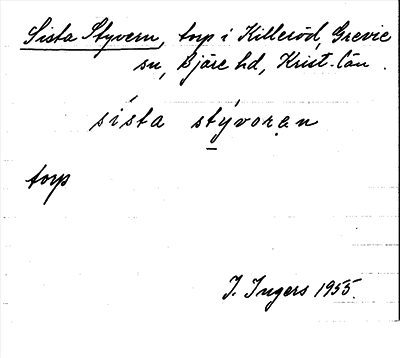 Sista Styvern, torp i Killeröd, Grevie
sn, Bjäre hd, Krist. län.
sísta stývorạn
torp
I. Ingers 1955.